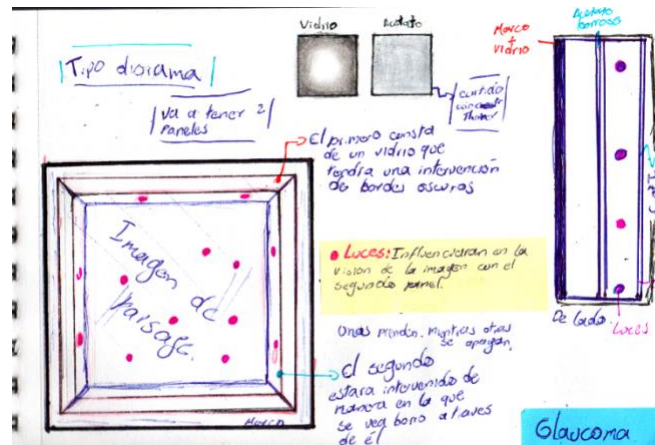 Tipo diorama
Va a tener 2
paneles
Vidrio
Acetato
curtido
con
thiner
El primero consta
de un vidrio que
tendra una intervención
de bordes oscuros
Luces: Influenciaran en la
vision de la imagen con el
segundo panel.
Unas prenden, mientras otras
se apagan.
El segundo
estara intervenido de
manera en la que
se vea borro a traves
de él
Imagen de
paisaje.
Marco
Marco
+
vidrio
Acetato
borroso
De lado.
Luces
Glaucoma